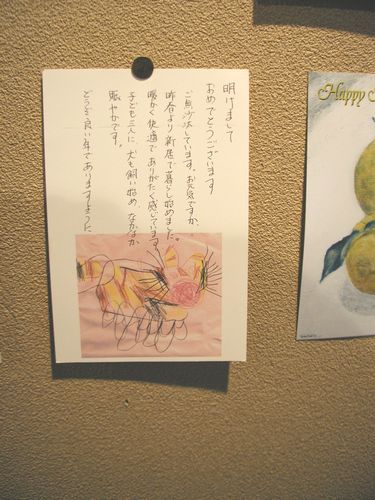 明けまして
おめでとうございます
ご無沙汰しています。お元気ですか、
昨春より新居で暮らし始めました。
暖かく快適でありがたく感じています。
子ども三人に、犬も飼い始め、なかなか
賑やかです。
どうぞ良い年でありますように
Happy